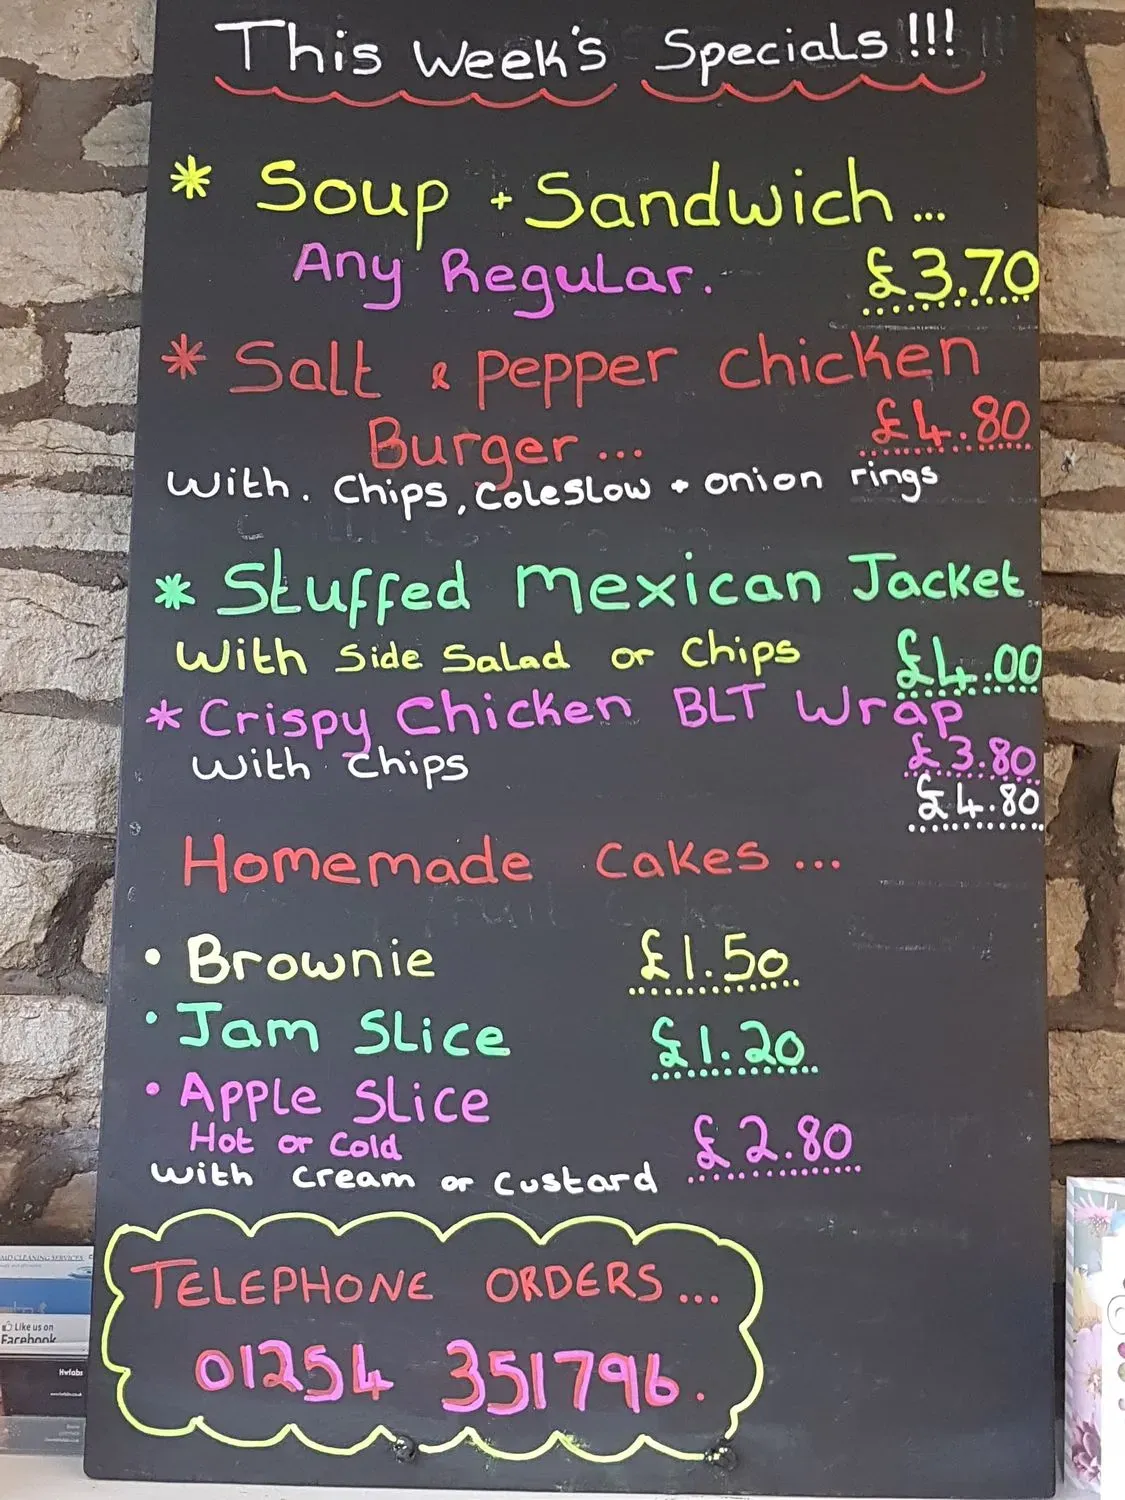 This Week's Specials!!!
* Soup + Sandwich...
Any Regular. £3.70
* Salt & pepper chicken
Burger... £4.80
With. Chips, Coleslow + onion rings
* Stuffed Mexican Jacket
With Side Salad or Chips £4.00
* Crispy Chicken BLT Wrap
£3.80
With Chips £4.80
Homemade Cakes...
• Brownie £1.50
• Jam Slice £1.20
• Apple Slice
Hot or Cold £2.80
With Cream or Custard
TELEPHONE ORDERS...
01254 351796.
CLEANING SERVICES
Like us on
Facebook
Hwfabs